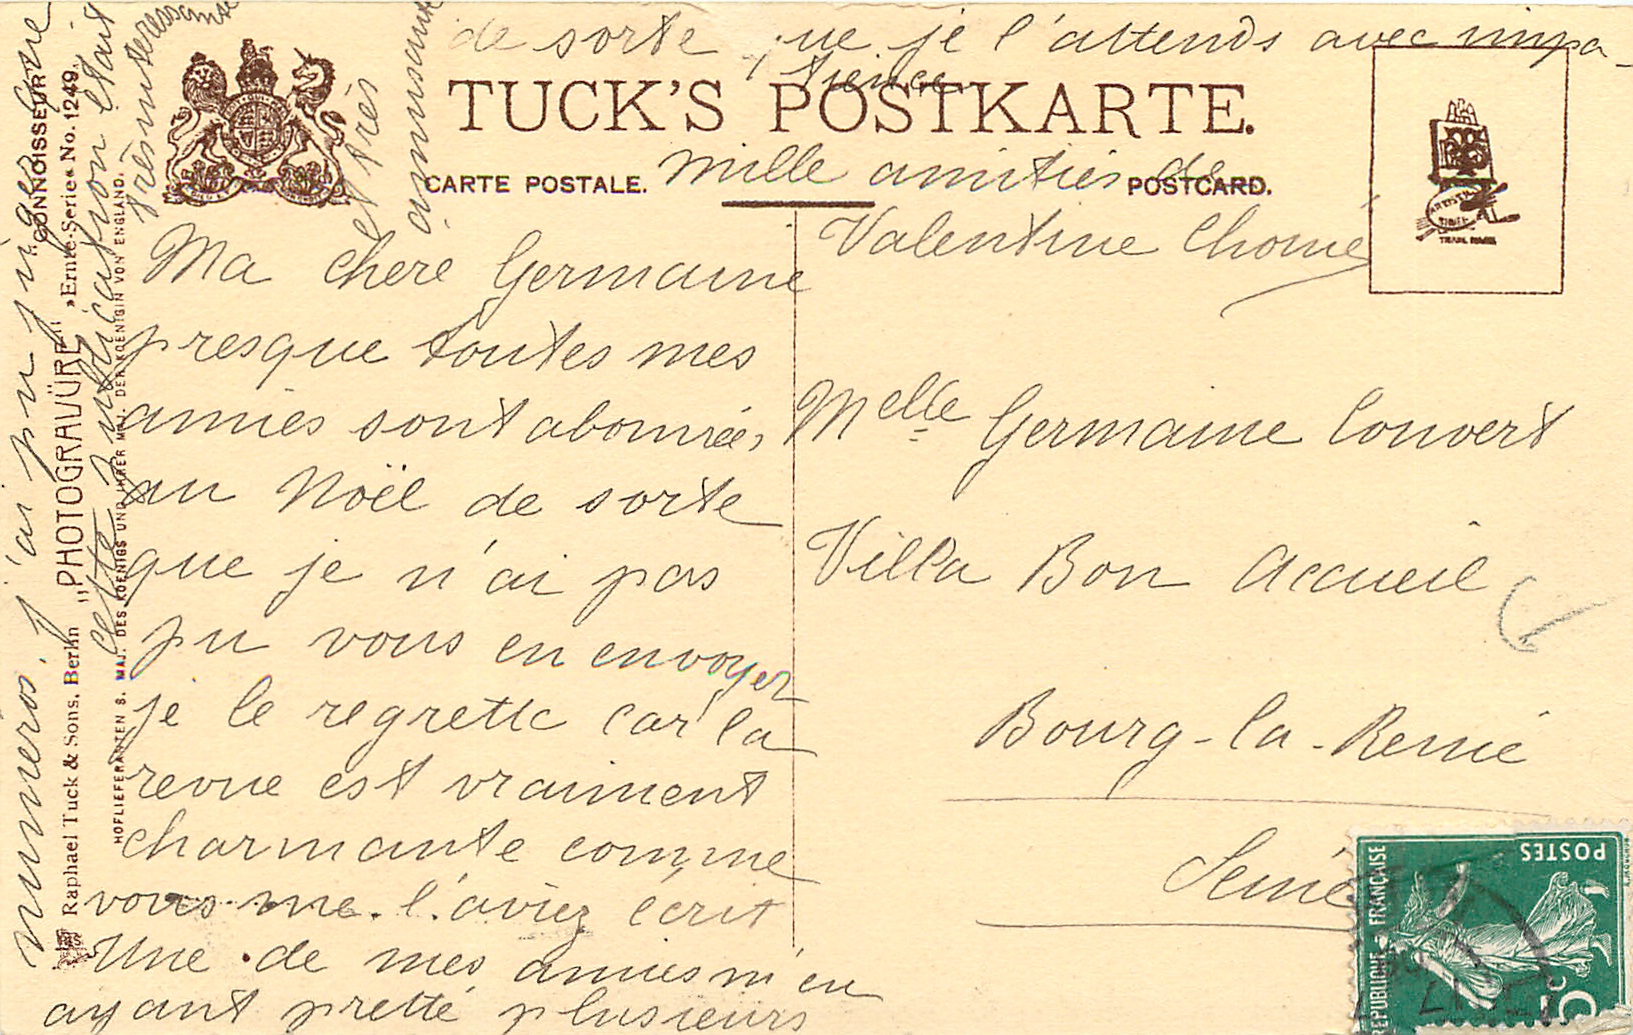 de sorte que je l'attends avec impa-
tience
TUCK'S POSTKARTE.
CARTE POSTALE.
POSTCARD.
mille amitiés de
Valentine Chomé
Ma chere Germaine
presque toutes mes
amies sont abonnées
au Noël de sorte
que je n'ai pas
pu vous en envoyer
je le regrette car la
revue est vraiment
charmante comme
vous me l'aviez écrit
Une de mes amies m'en
ayant pretté plusieurs
numeros. j'ai pu juger que
cette publication était
très interessante
et très
ammusante
Melle Germaine Convert
Villa Bon Accueil
Bourg-la-Reine
Seine
CONNOISSEUR
Raphael Tuck & Sons. Berlin „PHOTOGRAVÜRE" »Ernte-Serie« No. 1249.
HOFLIEFERANTEN S. MAJ. DES KOENIGS UND IHRER MAJ. DER KOENIGIN VON ENGLAND.
REPUBLIQUE FRANÇAISE
POSTES
5c